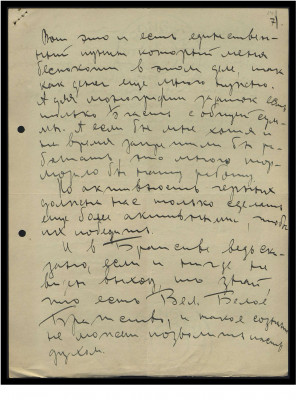 7/.
Вот это и есть единствен-
ный пункт который меня
беспокоит в этом деле, так
как денег ещё много нужно.
А для монографии задаток есть
только часть с общей сум-
мы. А если бы мне хотя и
на время запретили бы ра-
ботать, это много тор-
мозило бы нашу работу.
Но активность черных
должна нас только сделать
еще более активными, чтобы
их победить.
И в Братстве ведь ска-
зано, если и нигде не
виден выход, то знай
что есть Бел. Белое
Братство, и такое сознание
не может позволить пасть
духом.